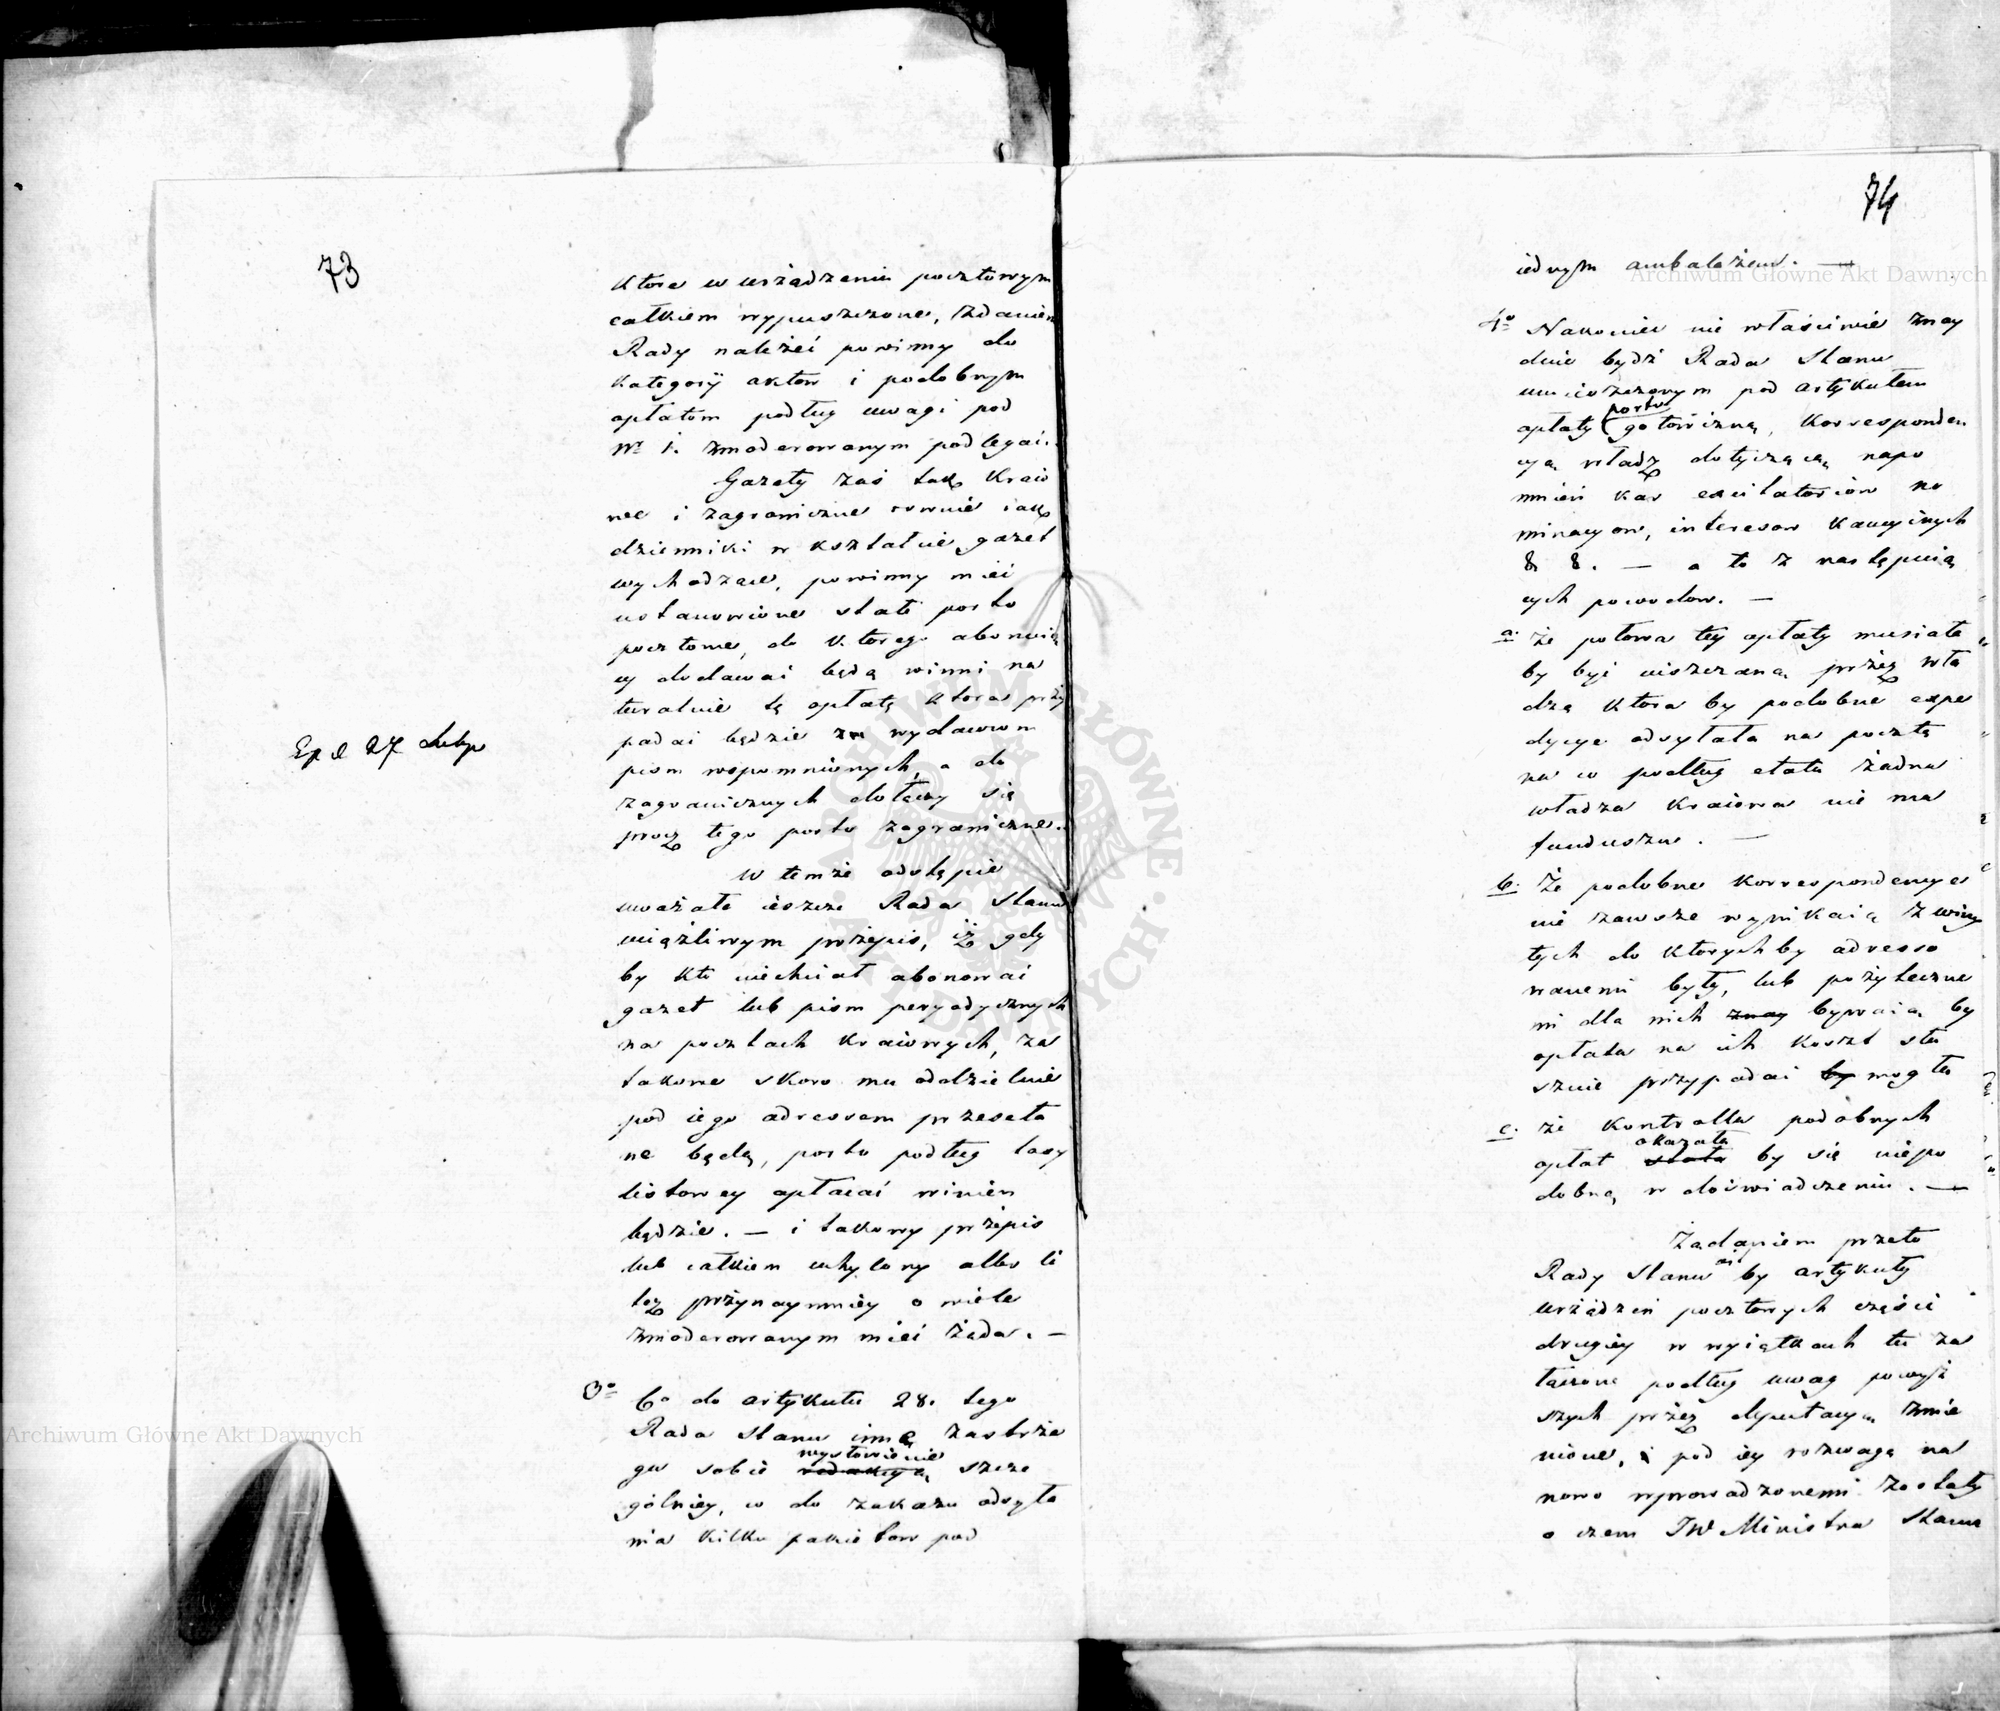 73
które w urządzeniu pocztowym
całkiem wypuszczone, zdaniem
Rady należeć powinny do
kategoryi aktow i podobnym
opłatom podług uwagi pod
Nr 1. zmoderowanym podlegać.
Gazety zaś tak kraio
we i zagraniczne rownie iak
dzienniki w kształcie gazet
wychodzące, powinny mieć
ustanowione stałe porto
pocztowe, do ktorego abonuią
cy dodawać będą winni na
turalnie tę opłatę ktora przy
padać będzie za wydawcom
pism wspomnionych, a do
zagranicznych dołączy się
procz tego porto zagraniczne.
W temże odstępie
uważała ieszcze Rada Stanu
uciążliwym przepis, iż gdy
by kto niechciał abonować
gazet lub pism peryodycznych
na pocztach kraiowych, za
takowe skoro mu oddzielnie
pod iego adressem przesyła
ne będą, porto podług taxy
listowey opłacać winien
będzie. — i takowy przepis
lub całkiem uchylony albo li
też przynaymniey o wiele
zmoderowanym mieć żąda. —
3o Co do artykułu 28. tego
Rada Stanu inną zastrze
ga sobie wysłowienie redakcyą szcze
gólniey, co do zakazu odsyła
nia kilku pakietow pod
Exp d 27 Lutego
74
iednym ambalażem. —
4o Nakoniec nie właściwie znay
duie bydź Rada Stanu
umieszczonym pod artykułem
opłaty porto gotowizną, korresponden
cyą władz dotyczącą napo
mnień kar excitatoriow no
minacyow, interesow kaucyinych
& &. — a to z następuią
cych powodow. —
a. że połowa tey opłaty musiała
by być uiszczaną przez wła
dzę ktora by podobne expe
dycye odsyłała na pocztę
na co podług etatu żadna
władza kraiowa nie ma
funduszu. —
b. że podobne korrespondencye
nie zawsze wynikaią z winy
tych do ktorychby adresso
wanemi były, lub pożyteczne
mi dla nich znay bywaią by
opłata na ich koszt słu
sznie przypadać by mogła
c. że kontrolla podobnych
opłat okazała stała by się niepo
dobną w doświadczeniu. —
Żądaniem przeto
Rady Stanu by artykuły
urządzeń pocztowych części
drugiey w wyiątkach tu za
łączone podług uwag powyż
szych przez deputacyą zmie
nione, i pod iey rozwagę na
nowo wprowadzonemi zostały
o czem JW Ministra Stanu
Archiwum Główne Akt Dawnych
Archiwum Główne Akt Dawnych
ARCHIWUM GŁÓWNE · AKT DAWNYCH ·